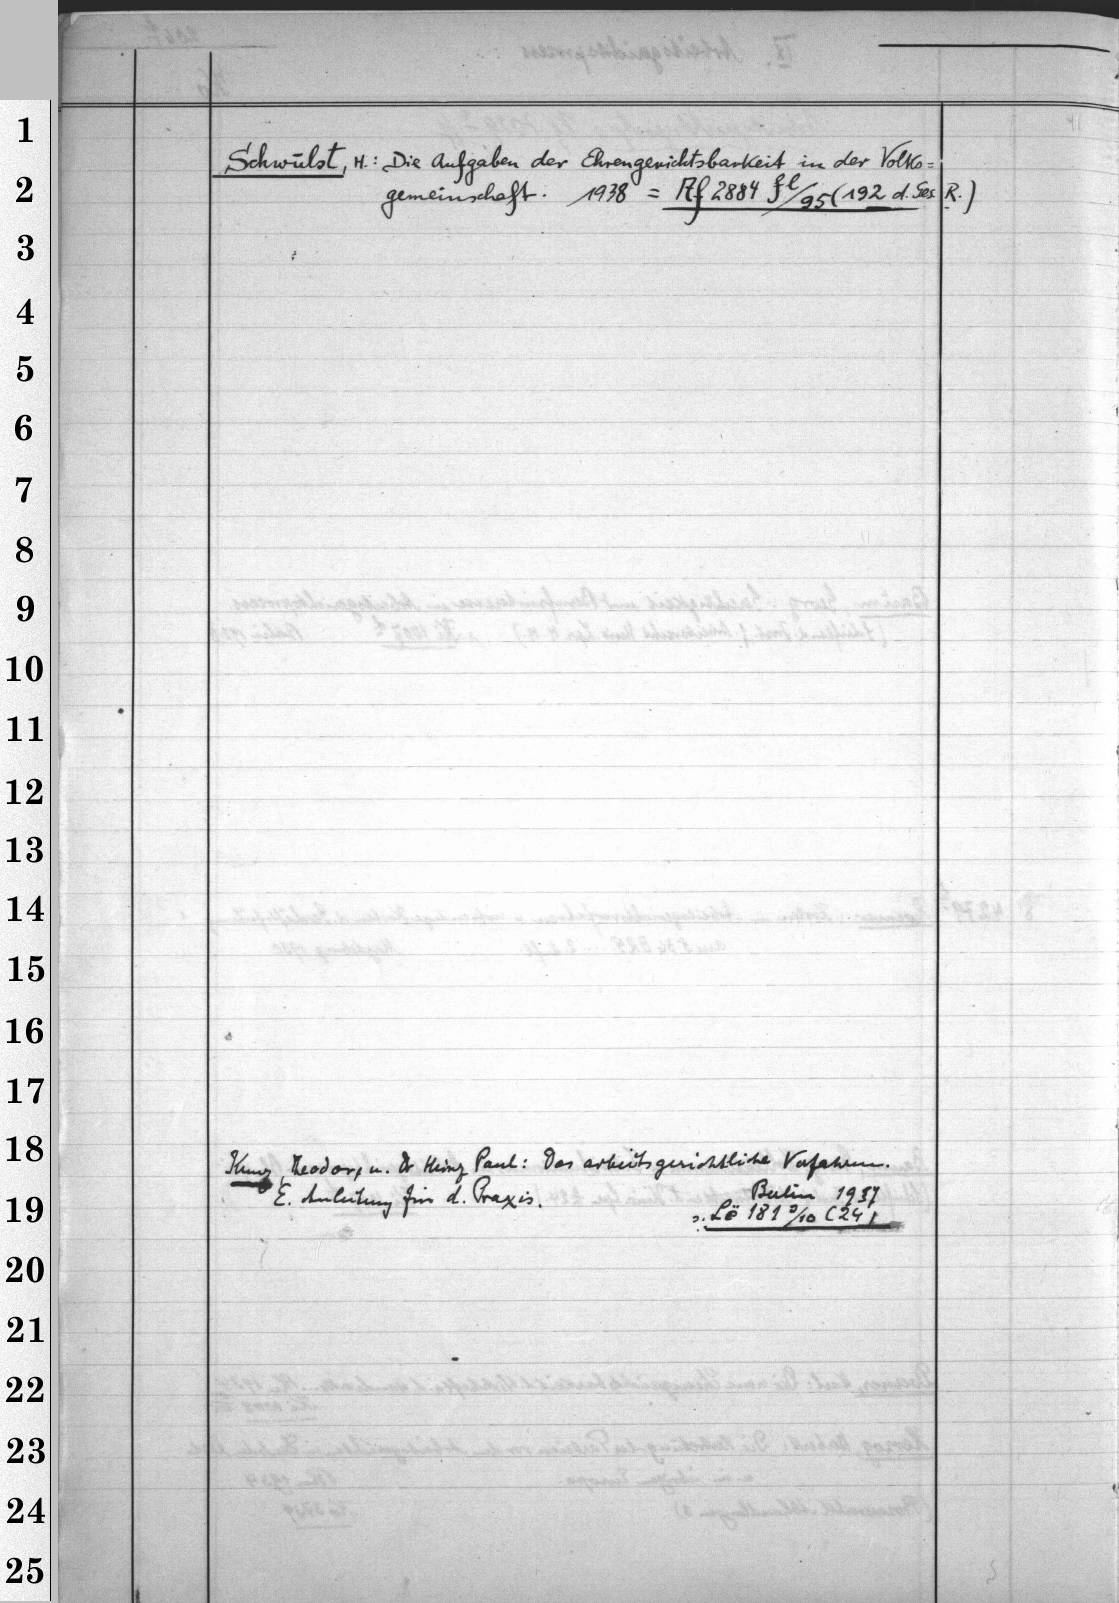 1
2
3
4
5
6
7
8
9
10
11
12
13
14
15
16
17
18
19
20
21
22
23
24
25
Schwulst, H.: Die Aufgaben der Ehrengerichtsbarkeit in der Volks=
gemeinschaft. 1938 = Af 2884 fl/95 (192 d. Ges R.)
Kunz, Theodor, u. Dr Heinz Paul: Das arbeitsgerichtliche Verfahren.
E. Anleitung für d. Praxis. Berlin 1937
Lö 181 /10 (24)